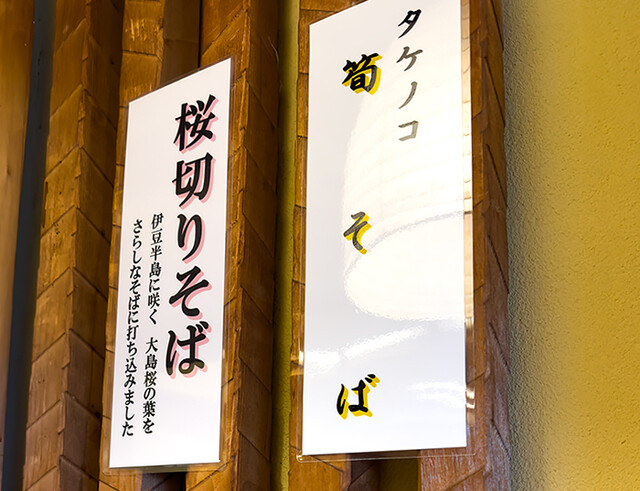 タケノコ
筍そば
桜切りそば
伊豆半島に咲く 大島桜の葉を
さらしなそばに打ち込みました